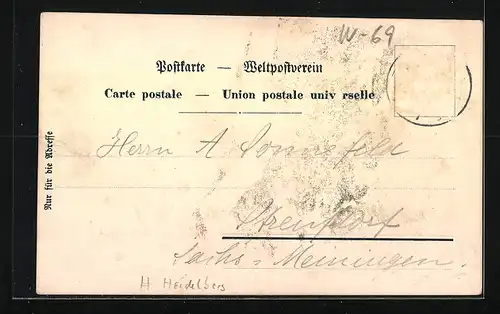 IV-69
Postkarte — Weltpostverein
Carte postale — Union postale univ rselle
Nur für die Adresse
Herrn A Sonnefeld
Sachs = Meiningen.
H Heidelberg